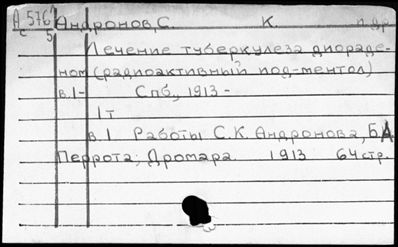 А 576 Андронов, С. К. и др
с 5
Лечение туберкулеза диораде-
ном (радиоактивный под-ментол)
в.1- Спб, 1913 -
1т
в.1 Работы С.К. Андронова, Б.А
Перрота; Дромара. 1913 64 стр.